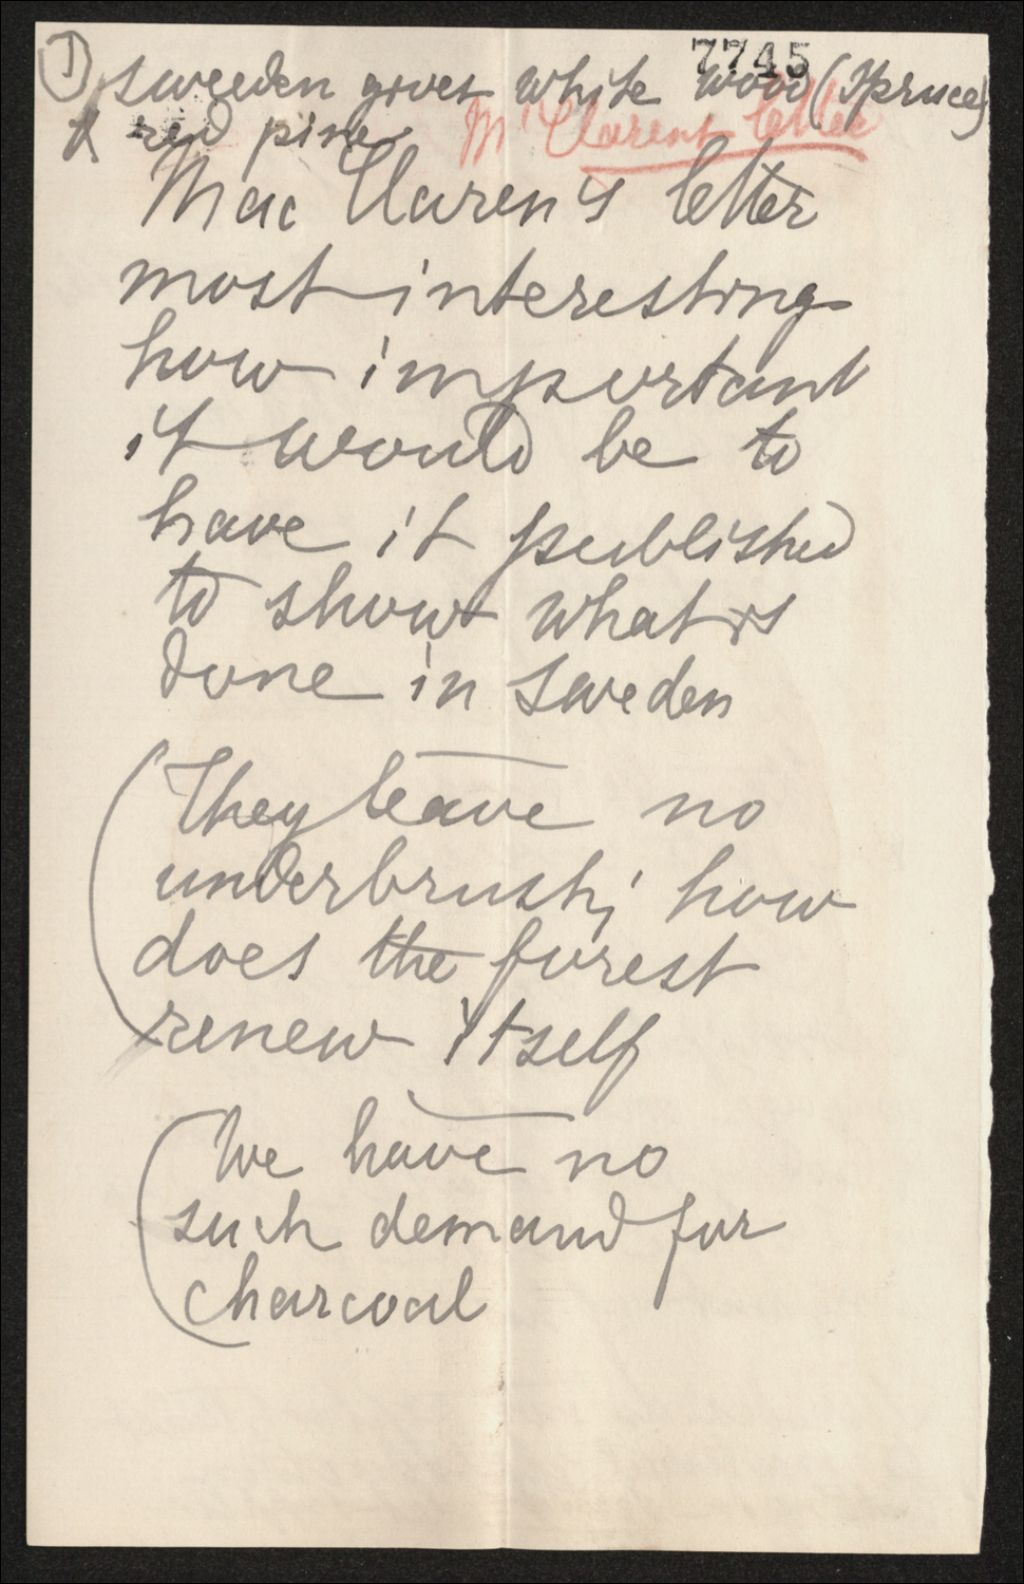 7745
① Sweeden gives white wood (Spruce)
& red pine
Mc Clarens letter
Mac Claren's letter
most interesting
how important
it would be to
have it published
to show what is
done in Sweden
(They leave no
underbrush; how
does the forest
renew itself
(We have no
such demand for
charcoal